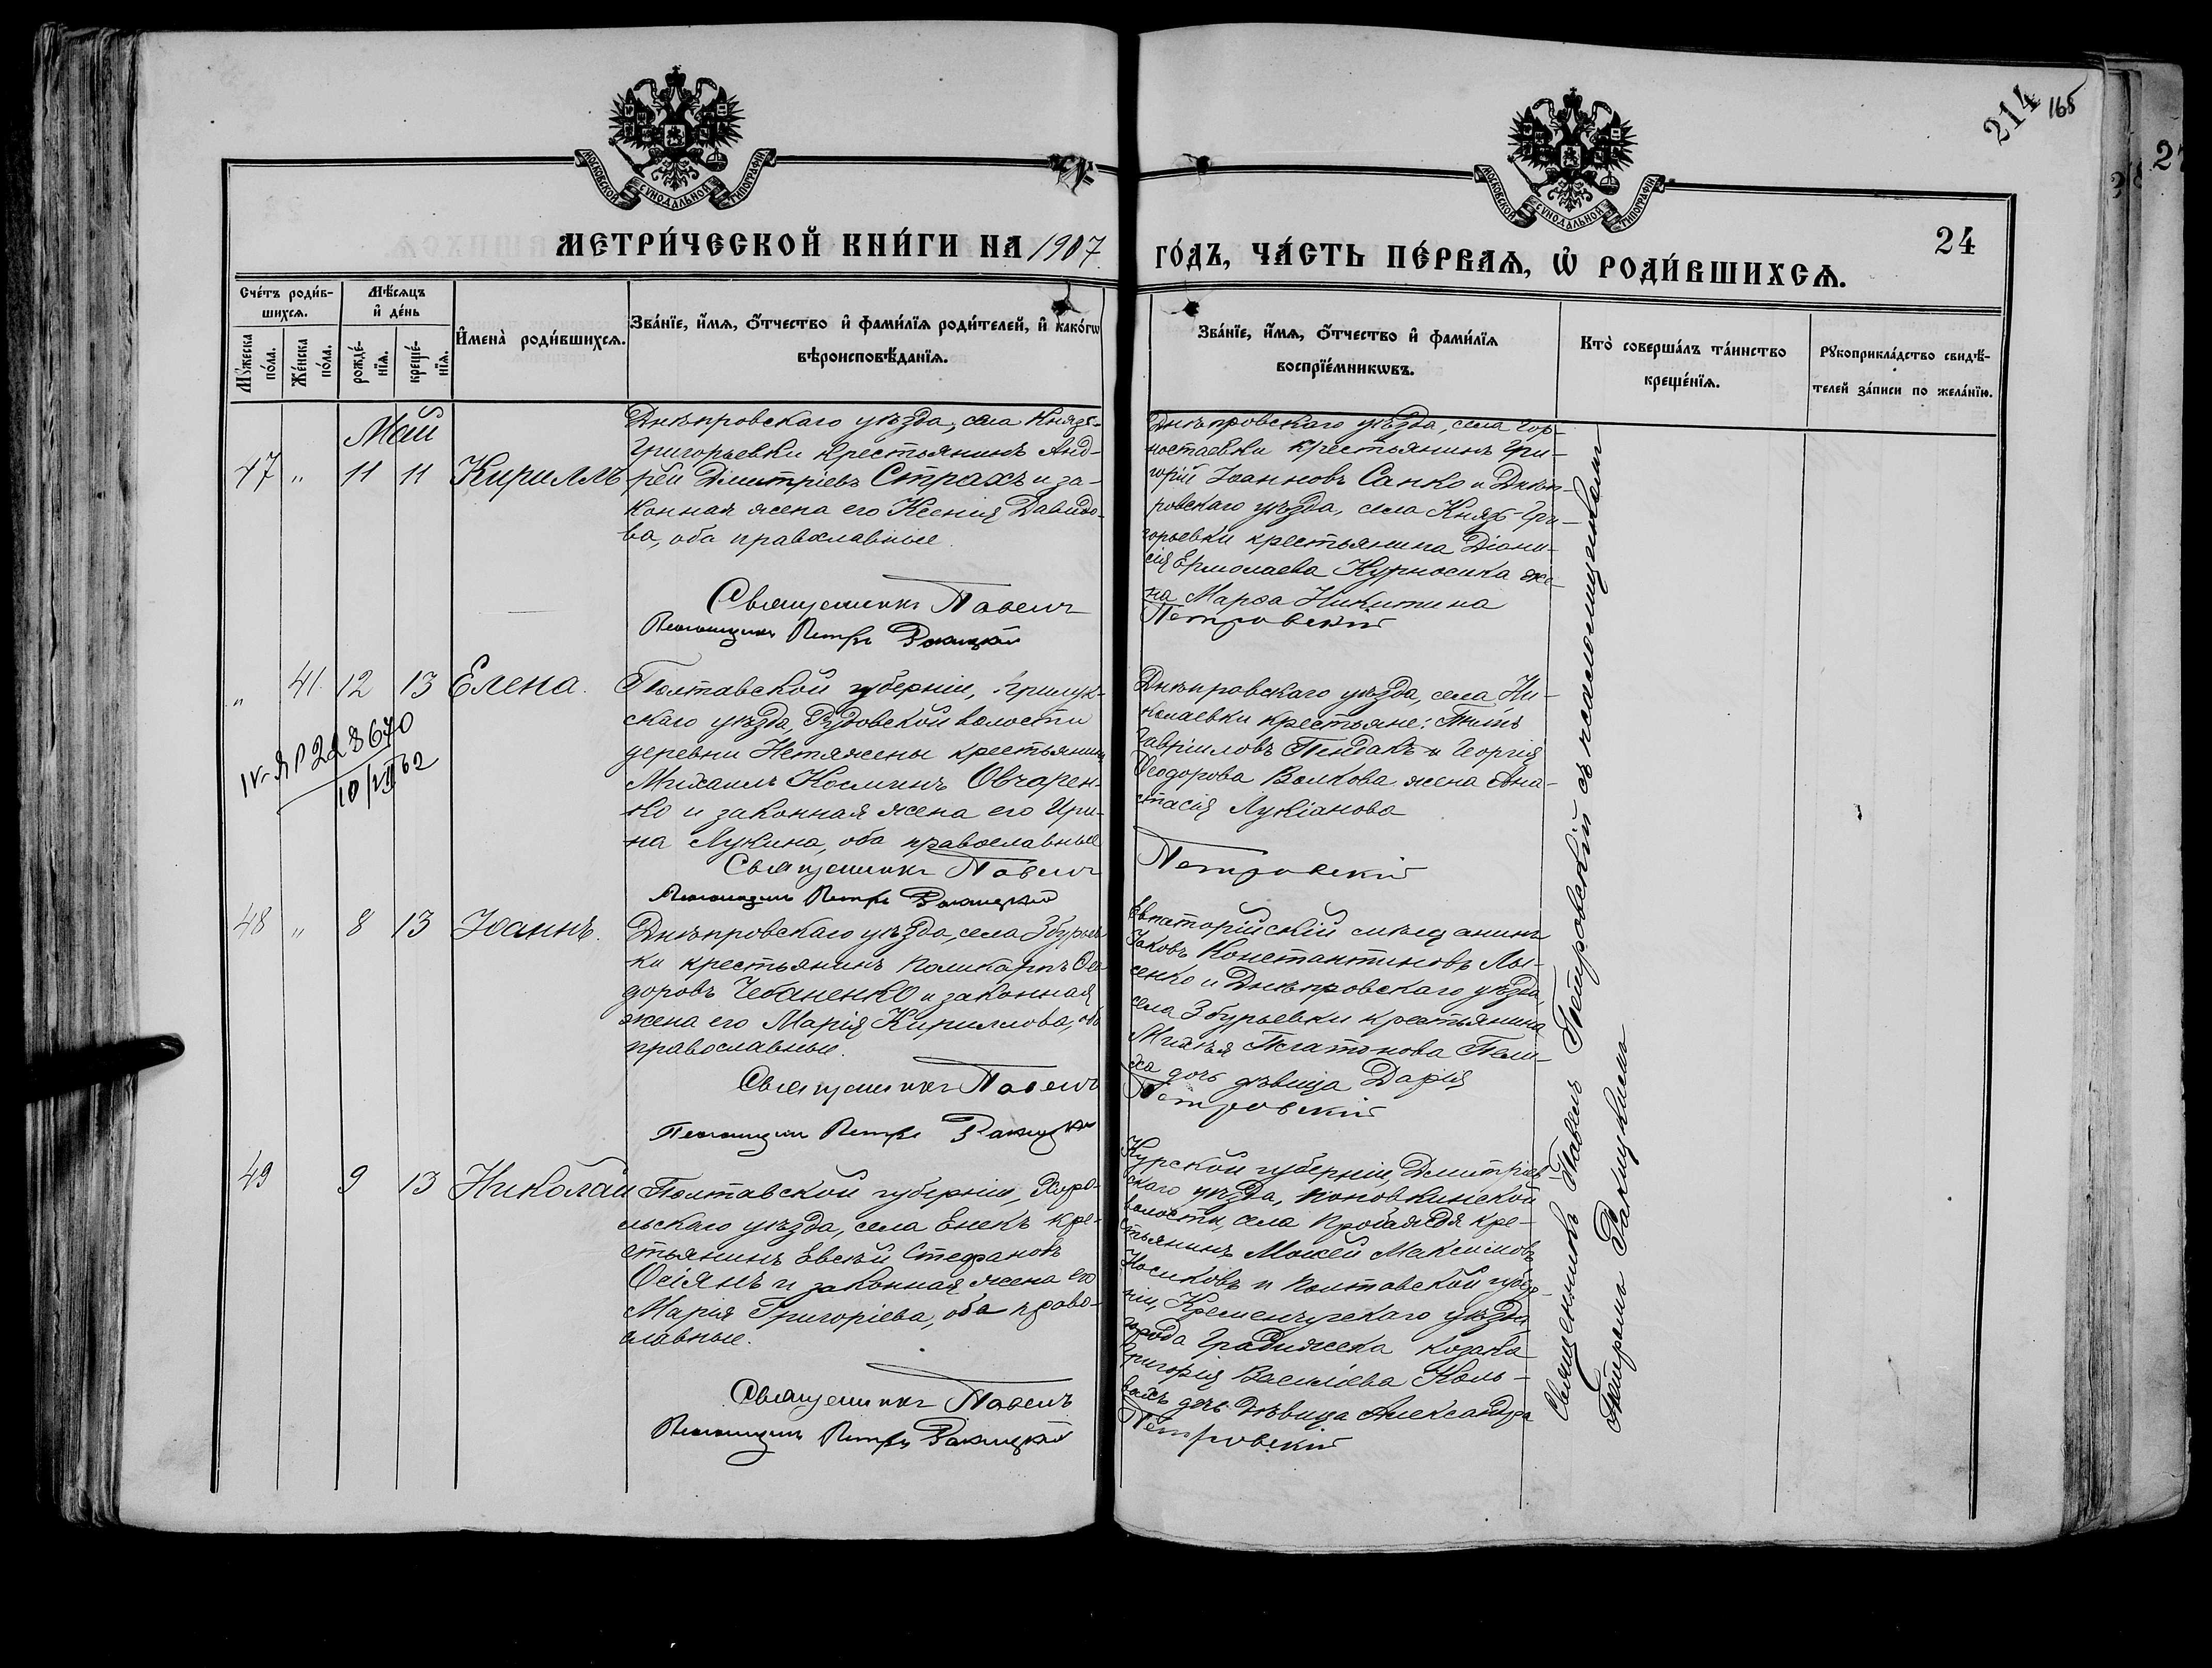 214 165
МОСКОВСКОЙ СУНОДАЛЬНОЙ ТИПОГРАФІИ
МОСКОВСКОЙ СУНОДАЛЬНОЙ ТИПОГРАФІИ
24
МЕТРИ́ЧЕСКОЙ КНИ́ГИ НА 1907
ГО́ДЪ, ЧА́СТЬ ПЕ́РВАѦ, Ѽ РОДИ́ВШИХСѦ.
Сче́тъ роди́в-
шихсѧ.
Мꙋ́жеска по́ла.
Же́нска по́ла.
Мѣ́сѧцъ
и҆ де́нь
рожде́-
нїѧ.
креще́-
нїѧ.
И҆мена̀ роди́вшихсѧ.
Зва́нїе, и҆́мѧ, ѻ҆́тчество и҆ фами́лїѧ роди́телей, и҆ како́гѡ
вѣроисповѣ́данїѧ.
Зва́нїе, и҆́мѧ, ѻ҆́тчество и҆ фами́лїѧ
воспрїе́мникѡвъ.
Кто̀ соверша́лъ та́инство
креще́нїѧ.
Рꙋкоприкла́дство свидѣ́-
телей за́писи по жела́нїю.
Май
47 " 11 11 Кириллъ
Днѣпровскаго уѣзда, села Князе-
Григорьевки крестьянинъ Анд-
рей Димитріевъ Страхъ и за-
конная жена его Ксенія Давидо-
ва, оба православные.
Священникъ Павелъ
Псаломщикъ Петръ Ракицкій
Днѣпровскаго уѣзда, села Гор-
ностаевки крестьянинъ Гри-
горій Іоанновъ Санко и Днѣп-
ровскаго уѣзда, села Князе-Гри-
горьевки крестьянина Діони-
сія Ермолаева Курносика же-
на Марѳа Никитина
Петровскій
" 41 12 13 Елена.
10/VII 62
Полтавской губерніи, Прилук-
скаго уѣзда, волости
деревни Нетяжены крестьянинъ
Михаилъ Косминъ Овчарен-
ко и законная жена его Ири-
на Лукина, оба православные
Священникъ Павелъ
Псаломщикъ Петръ Ракицкій
Днѣпровскаго уѣзда, села Ни-
колаевки крестьяне: Титъ
Гавріиловъ Пендакъ и Георгія
Ѳеодорова Волкова жена Ана-
стасія Лукіанова
Петровскій
48 " 8 13 Іоаннъ.
Днѣпровскаго уѣзда, села Збурьев-
ки крестьянинъ Поликарпъ Ѳео-
доровъ Чебаненко и законная
жена его Марія Кириллова, оба
православные.
Священникъ Павелъ
Псаломщикъ Петръ Ракицкій
Евпаторійскій мѣщанинъ
Іаковъ Константиновъ Лы-
сенко и Днѣпровскаго уѣзда,
села Збурьевки крестьянина
Михея Платонова Пели-
ха дочь дѣвица Дарія
Петровскій
49 9 13 Николай
Полтавской губерніи, Хоро-
льскаго уѣзда, села Енекъ кре-
стьянинъ Евсей Стефановъ
Осіянъ и законная жена его
Марія Григоріева, оба право-
славные.
Священникъ Павелъ
Псаломщикъ Петръ Ракицкій
Курской губерніи, Дмитріев-
скаго уѣзда, Поповкинской
волости, села кре-
стьянинъ Мокей Максимовъ
Носиковъ и Полтавской губер-
ніи, Кременчугскаго уѣзда,
города Градижска козака
Григорія Василіева Коль-
дочь дѣвица Александра
Петровскій
Священникъ Павелъ Петровскій съ псаломщикомъ
Петромъ Ракицкимъ